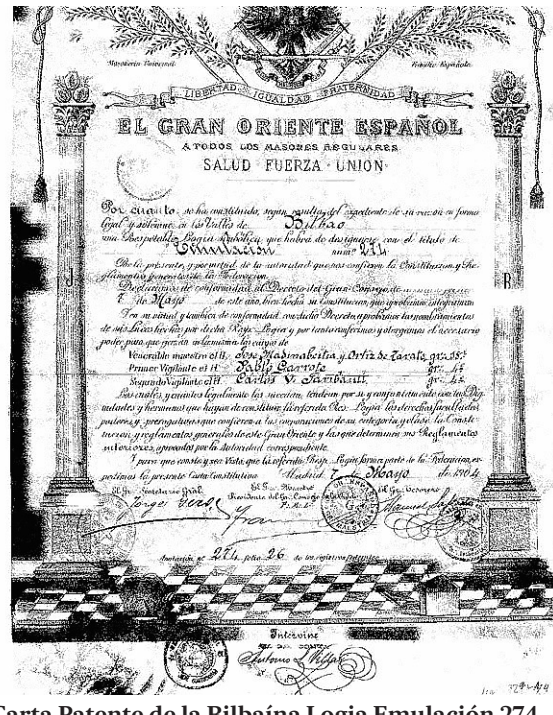 Masonería Universal
Familia Española
LIBERTAD IGUALDAD FRATERNIDAD
EL GRAN ORIENTE ESPAÑOL
A TODOS LOS MASONES REGULARES
SALUD · FUERZA · UNION
Por cuanto se ha constituido, según resulta del expediente de su razón en forma
legal y solemne en los Valles de Bilbao
una Respetable Logia Simbólica, que habrá de designarse con el título de
Emulación núm° 274
Por la presente, y por virtud de la autoridad que nos confieren la Constitución y Re-
glamentos generales de la Federación
de conformidad al Decreto del Gran Consejo de
7 de Mayo de este año, bien hecha su Constitución, que aprobamos íntegramente
y en su virtud y también de conformidad con dicho Decreto, aprobamos los nombramientos
de sus Luces hechos por dicha Resp. Logia y por tanto conferimos y otorgamos el necesario
poder, para que ejerzan en la misma los cargos de
Venerable maestro el H. Jose Masinabeitia y Ortiz de Zarate, gr.
Primer Vigilante el H. Pablo Garrote gr.
Segundo Vigilante el H. Carlos gr.
Los cuales, y quienes legalmente les sucedan, tendrán por sí y conjuntamente con las Dig-
nidades y hermanos que hayan de constituir la referida Res. Logia, los derechos, facultades,
poderes y prerrogativas que confieren a las corporaciones de su categoría y clase la Consti-
tución y reglamentos generales de este Gran Oriente y las que determinen sus Reglamentos
interiores, aprobados por la autoridad correspondiente.
Y para que conste y sea Visto, que la referida Resp. Logia forma parte de la Federación, ex-
pedimos la presente Carta Constitutiva Madrid 7 de Mayo de 1904
El Gr. Secretario Gral.
El Gr. Maestre
Presidente del Gr. Consejo
El Gr. Tesorero
J
B
Anotación n° 274 folio 26 de los registros
Intervine
Carta Patente de la Bilbaína Logia Emulación 274